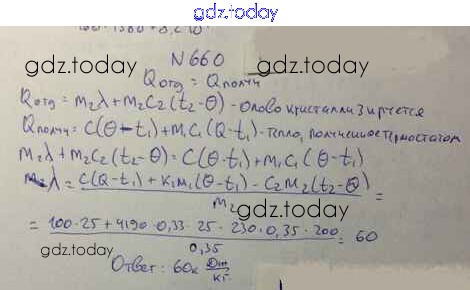 gdz.today
N 660
gdz.today
gdz.today
Qотд = Qполуч
Qотд = m₂λ + m₂c₂(t₂-θ) - олово кристаллизируется
Qполуч = C(θ-t₁) + m₁c₁(θ-t₁) - тепло, полученное термостатом
m₂λ + m₂c₂(t₂-θ) = C(θ-t₁) + m₁c₁(θ-t₁)
λ = C(θ-t₁) + к₁m₁(θ-t₁) - c₂m₂(t₂-θ) =
m₂
gdz.today
= 100·25 + 4190·0,33·25 - 230·0,35·200 = 60
0,35
gdz.today
Ответ: 60к Дж
кг.
gdz.today